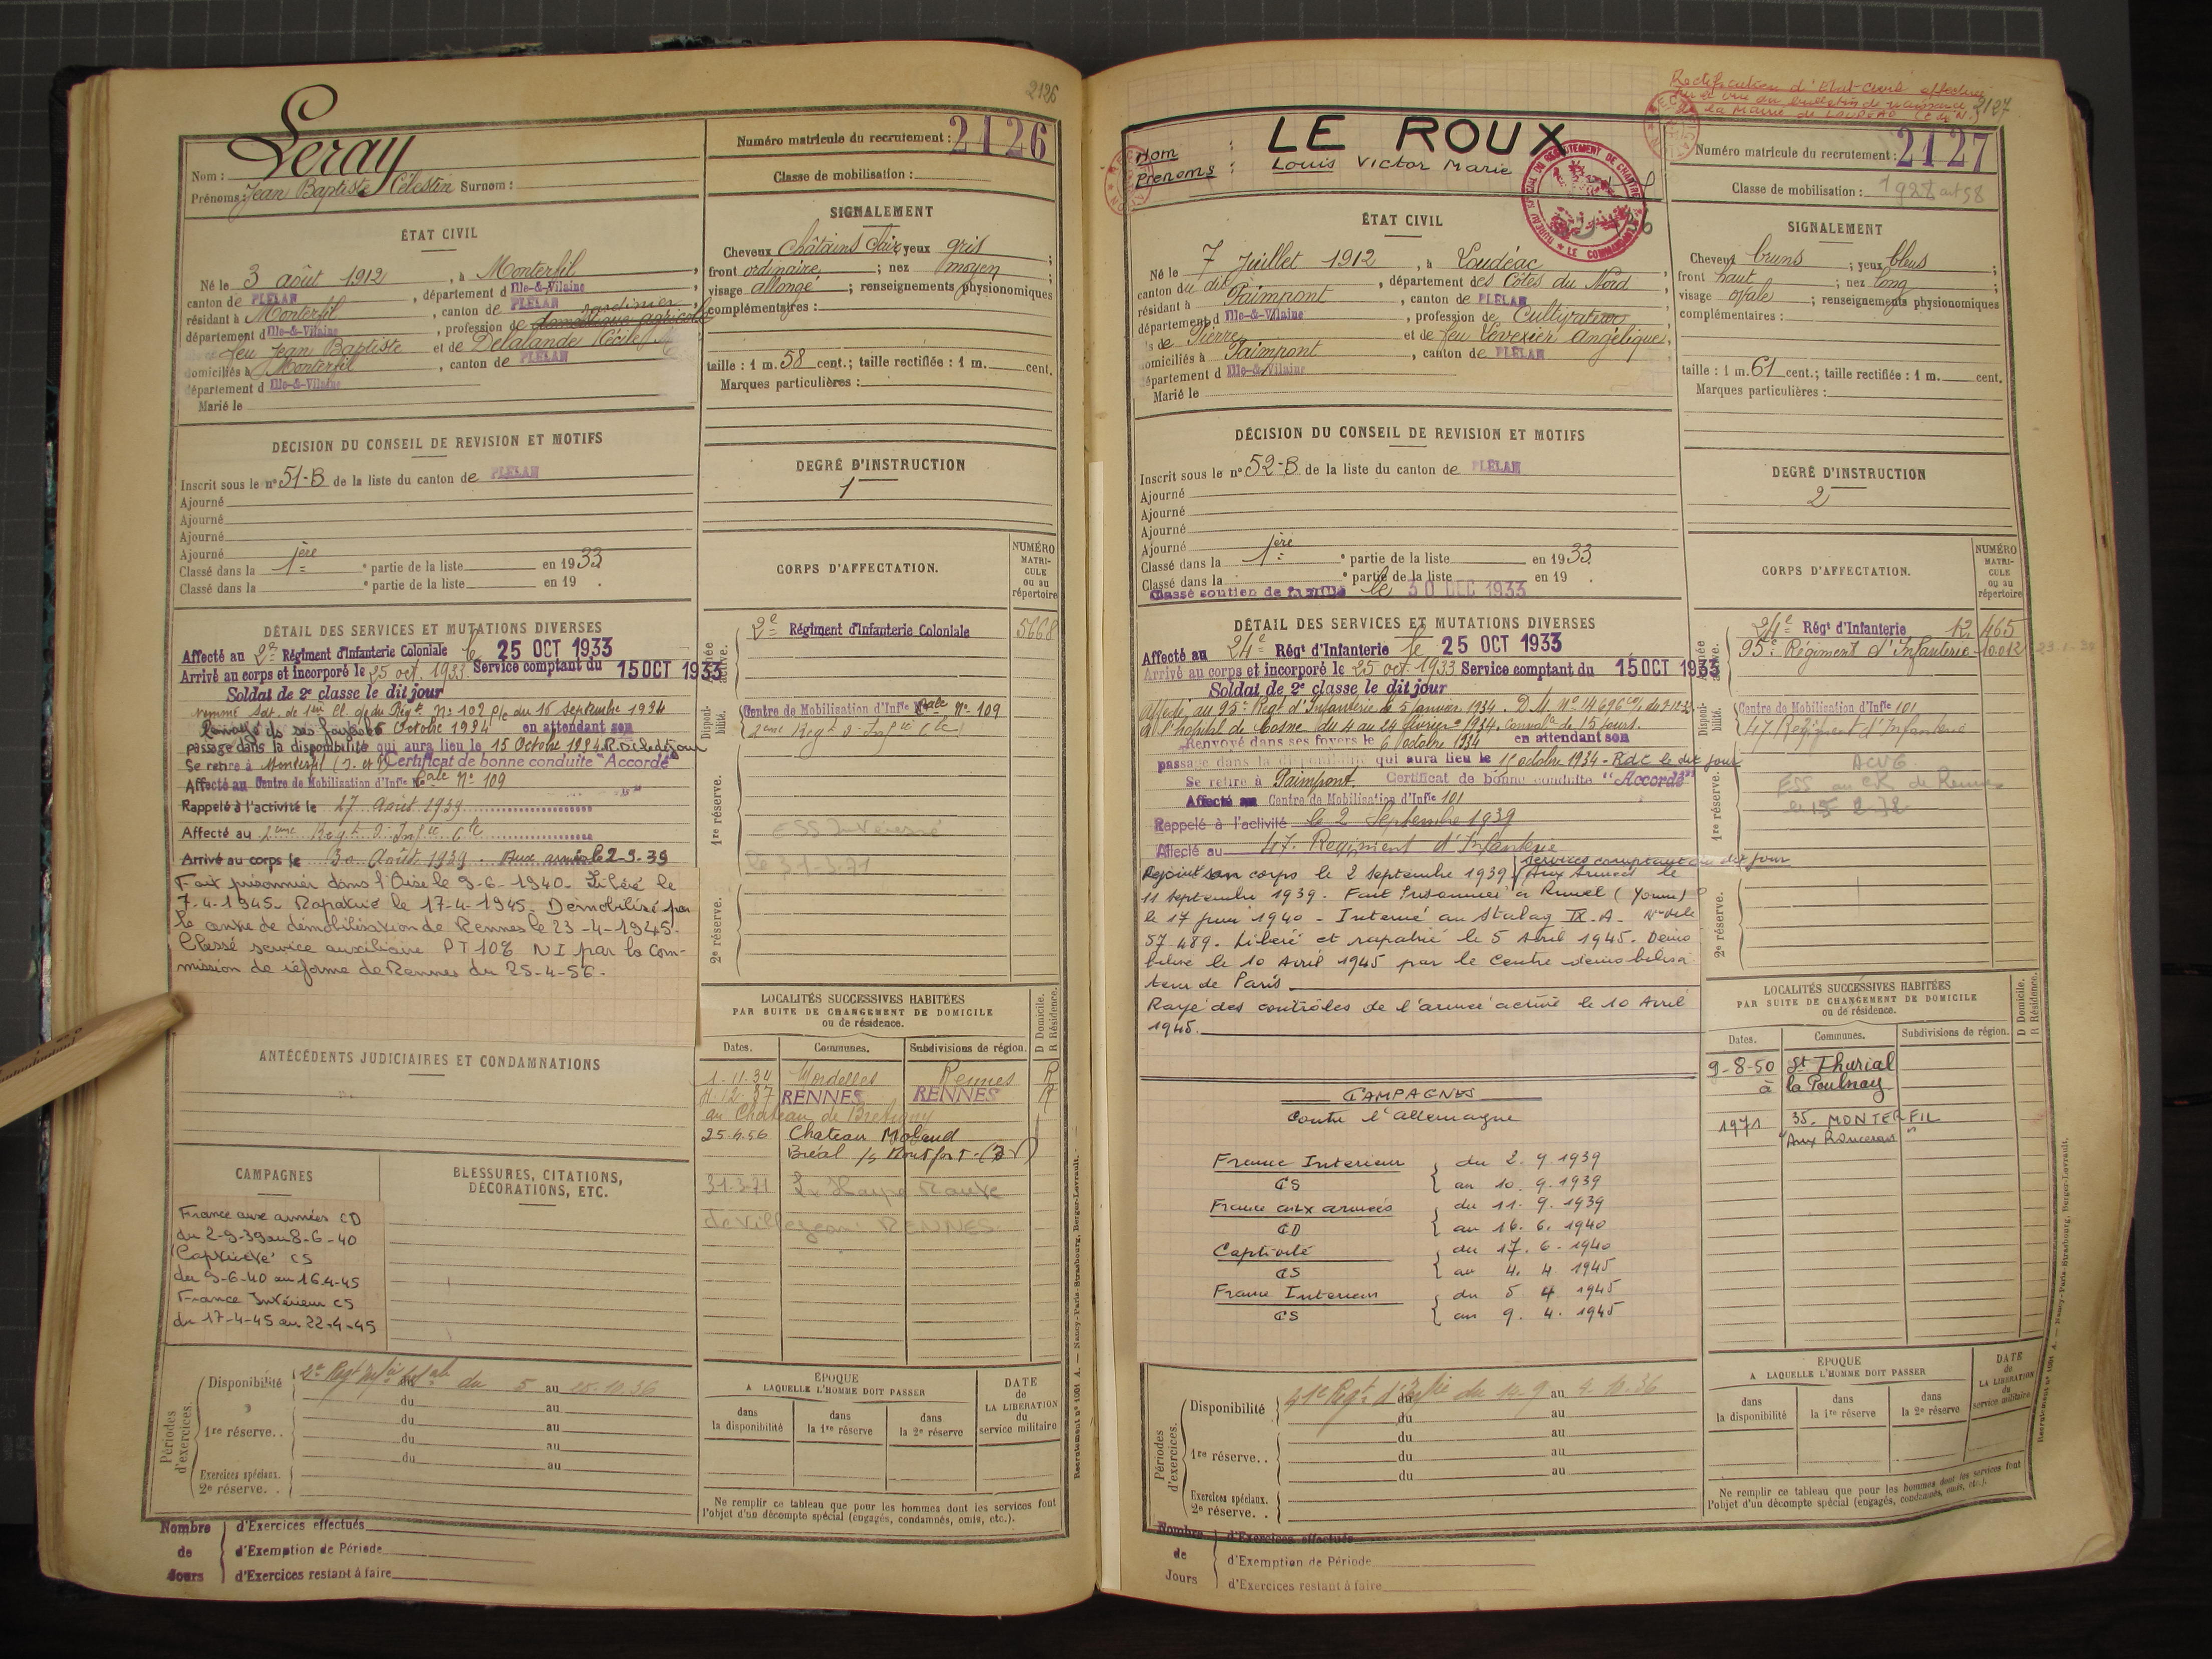 2126
Leray
Nom :
Prénoms : Jean Baptiste Célestin Surnom :
Numéro matricule du recrutement : 2126
Classe de mobilisation :
ÉTAT CIVIL
Né le 3 août 1912, à Monterfil
canton de PLÉLAN, département d'Ille-&-Vilaine
résidant à Monterfil, canton de PLÉLAN
jardinier
département d'Ille-&-Vilaine, profession de domestique agricole
feu Jean Baptiste et de Delalande Cécile
domiciliés à Monterfil, canton de PLÉLAN
département d'Ille-&-Vilaine
Marié le
SIGNALEMENT
Cheveux châtains clair, yeux gris ;
front ordinaire ; nez moyen ;
visage allongé ; renseignements physionomiques
complémentaires :
taille : 1 m. 58 cent.; taille rectifiée : 1 m. cent.
Marques particulières :
DÉCISION DU CONSEIL DE REVISION ET MOTIFS
Inscrit sous le n° 51-B de la liste du canton de PLÉLAN
Ajourné
Ajourné
Ajourné
Ajourné
Classé dans la 1ère partie de la liste en 1933
Classé dans la e partie de la liste en 19 .
DEGRÉ D'INSTRUCTION
1
CORPS D'AFFECTATION.
NUMÉRO MATRICULE ou au répertoire
2e Régiment d'Infanterie Coloniale 5668
Centre de Mobilisation d'Infie Cale N° 109
2eme Regt d'Infie Cle
ESS Intéressé
le 31-3-71
Disponibilité.
1re réserve.
2e réserve.
DÉTAIL DES SERVICES ET MUTATIONS DIVERSES
Affecté au 2e Régiment d'Infanterie Coloniale le 25 OCT 1933
Arrivé au corps et incorporé le 25 oct. 1933. Service comptant du 15 OCT 1933
Soldat de 2e classe le dit jour
nommé Sdt. de 1ère Cl. O. du Régt N° 102 p/c du 16 septembre 1934
Octobre 1934 en attendant son
passage dans la disponibilité qui aura lieu le 15 Octobre 1934. R.D.C. le dit jour
Se retire à Monterfil (I. et V) Certificat de bonne conduite "Accordé"
Affecté au Centre de Mobilisation d'Infie Cale N° 109
Rappelé à l'activité le 27 Août 1939
Affecté au 2eme Regt d'Infie Cle
Arrivé au corps le 30 Août 1939. Aux armées le 2-9-39
Fait prisonnier dans l'Oise le 9-6-1940. Libéré le
7-4-1945. Rapatrié le 17-4-1945. Démobilisé par
le centre de démobilisation de Rennes le 23-4-1945.
Classé service auxiliaire PT 10% NI par la Com-
mission de réforme de Rennes du 25-4-56.
ANTÉCÉDENTS JUDICIAIRES ET CONDAMNATIONS
LOCALITÉS SUCCESSIVES HABITÉES
PAR SUITE DE CHANGEMENT DE DOMICILE
ou de résidence.
D Domicile. R Résidence.
Dates. Communes. Subdivisions de région.
1-11-34 Mordelles Rennes R
11-12-37 RENNES RENNES R
au Château de Bretigny
25.4.56 Chateau Molaud
Bréal /s Montfort-(IV)
31-3-71
de Villejean RENNES
CAMPAGNES
France aux armées CD
du 2-9-39 au 8-6-40
Captivité CS
du 9-6-40 au 16-4-45
France Intérieur CS
du 17-4-45 au 22-4-45
BLESSURES, CITATIONS,
DÉCORATIONS, ETC.
Périodes d'exercices.
Disponibilité du 5 au 25.10.36
du au
du au
1re réserve. . du au
du au
Exercices spéciaux.
2e réserve. .
ÉPOQUE
A LAQUELLE L'HOMME DOIT PASSER
dans la disponibilité dans la 1re réserve dans la 2e réserve
DATE de LA LIBÉRATION du service militaire
Ne remplir ce tableau que pour les hommes dont les services font
l'objet d'un décompte spécial (engagés, condamnés, omis, etc.).
Nombre de Jours
d'Exercices effectués
d'Exemption de Période
d'Exercices restant à faire
Recrutement n° 1001 A. — Nancy-Paris-Strasbourg, Berger-Levrault.
Rectification d'état-civil effectuée
au vu du bulletin de naissance 2127
de la Mairie de LOUDEAC (C. du N.)
Nom : LE ROUX
Prénoms : Louis Victor Marie
BUREAU SPÉCIAL DU RECRUTEMENT DE CHARTRES
LE COMMANDANT
Numéro matricule du recrutement : 2127
Classe de mobilisation : 1928 art 58
ÉTAT CIVIL
Né le 7 Juillet 1912, à Loudéac
canton du dit, département des Côtes du Nord
résidant à Paimpont, canton de PLÉLAN
département d'Ille-&-Vilaine, profession de Cultivateur
s de Pierre et de feu Leverier Angélique,
domiciliés à Paimpont, canton de PLÉLAN
département d'Ille-&-Vilaine
Marié le
SIGNALEMENT
Cheveux bruns ; yeux bleus ;
front haut ; nez long ;
visage ovale ; renseignements physionomiques
complémentaires :
taille : 1 m. 61 cent.; taille rectifiée : 1 m. cent.
Marques particulières :
DÉCISION DU CONSEIL DE REVISION ET MOTIFS
Inscrit sous le n° 52-B de la liste du canton de PLÉLAN
Ajourné
Ajourné
Ajourné
Ajourné
Classé dans la 1ère partie de la liste en 1933.
Classé dans la e partie de la liste en 19 .
Classé soutien de famille le 30 DEC 1933
DEGRÉ D'INSTRUCTION
2
CORPS D'AFFECTATION.
NUMÉRO MATRICULE ou au répertoire
24e Régt d'Infanterie 12.465
95e Régiment d'Infanterie 10012
Centre de Mobilisation d'Infie 101
47 Régiment d'Infanterie
ACVG
ESS au CR de Rennes
le 15 2-72
Disponibilité.
1re réserve.
2e réserve.
DÉTAIL DES SERVICES ET MUTATIONS DIVERSES
Affecté au 24e Régt d'Infanterie le 25 OCT 1933
Arrivé au corps et incorporé le 25 oct. 1933 Service comptant du 15 OCT 1933
Soldat de 2e classe le dit jour
Affecté au 95e Régt d'Infanterie le 5 janvier 1934. D.M. N° 14696
A l'hôpital de Cosne du 4 au 24 février 1934. Convalce de 15 jours.
Renvoyé dans ses foyers le 6 octobre 1934 en attendant son
passage dans la disponibilité qui aura lieu le 15 octobre 1934 - RDC le dit jour
Se retire à Paimpont. Certificat de bonne conduite "Accordé"
Affecté au Centre de Mobilisation d'Infie 101
Rappelé à l'activité le 2 Septembre 1939
Affecté au 47. Régiment d'Infanterie
Services comptant du dit jour
Rejoint son corps le 2 Septembre 1939 Aux Armées le
11 Septembre 1939. Fait Prisonnier a Ravel (Yonne)
le 17 juin 1940 - Interné au Stalag IX.A. N°
57.489. Libéré et rapatrié le 5 Avril 1945. Démo
bilisé le 10 Avril 1945 par le Centre démobilisa
teur de Paris.
Rayé des contrôles de l'armée active le 10 Avril
1945.
CAMPAGNES
Contre l'Allemagne
France Interieur CS du 2. 9. 1939 au 10. 9. 1939
France aux armées CD du 11. 9. 1939 au 16. 6. 1940
Captivité CS du 17. 6. 1940 au 4. 4. 1945
France Interieur CS du 5 4 1945 au 9. 4. 1945
LOCALITÉS SUCCESSIVES HABITÉES
PAR SUITE DE CHANGEMENT DE DOMICILE
ou de résidence.
D Domicile. R Résidence.
Dates. Communes. Subdivisions de région.
9-8-50 St Thurial
à la Poulnay
1971 35. MONTERFIL
Périodes d'exercices.
Disponibilité 41e Régt d'Infie du 14.9 au 4.10.36
du au
du au
1re réserve. . du au
du au
Exercices spéciaux.
2e réserve. .
ÉPOQUE
A LAQUELLE L'HOMME DOIT PASSER
dans la disponibilité dans la 1re réserve dans la 2e réserve
DATE de LA LIBÉRATION du service militaire
Ne remplir ce tableau que pour les hommes dont les services font
l'objet d'un décompte spécial (engagés, condamnés, omis, etc.).
Nombre de Jours
d'Exercices effectués
d'Exemption de Période
d'Exercices restant à faire
Recrutement n° 1001 A. — Nancy-Paris-Strasbourg, Berger-Levrault.